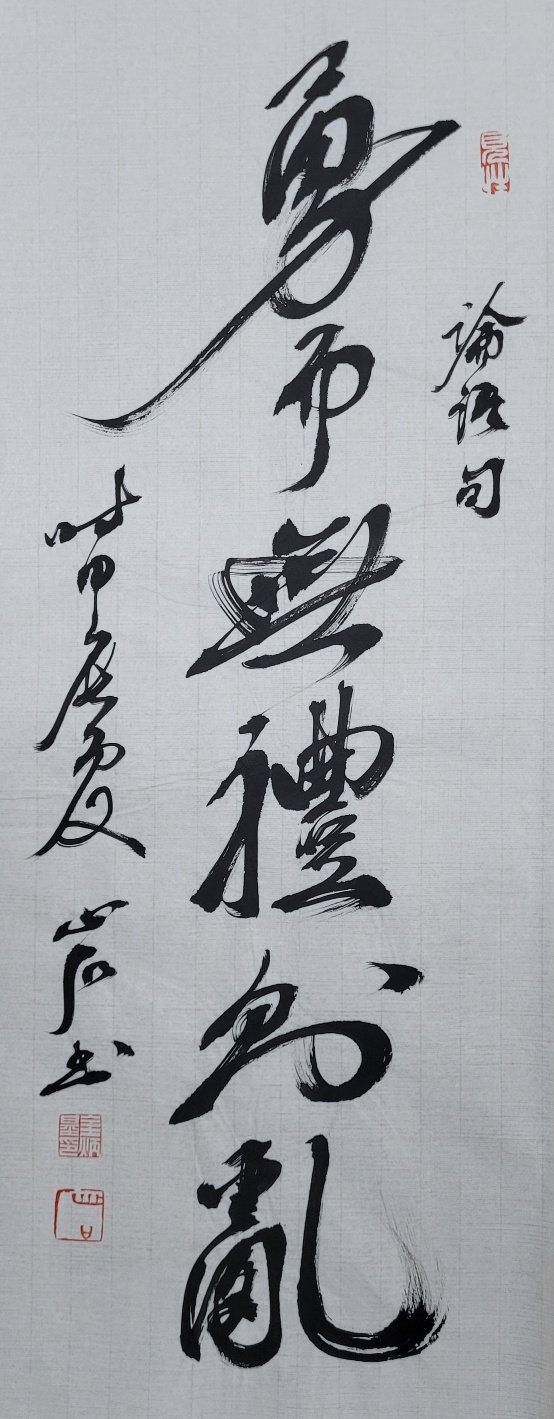 論語句
勇而無禮則亂
時甲辰夏 山石書